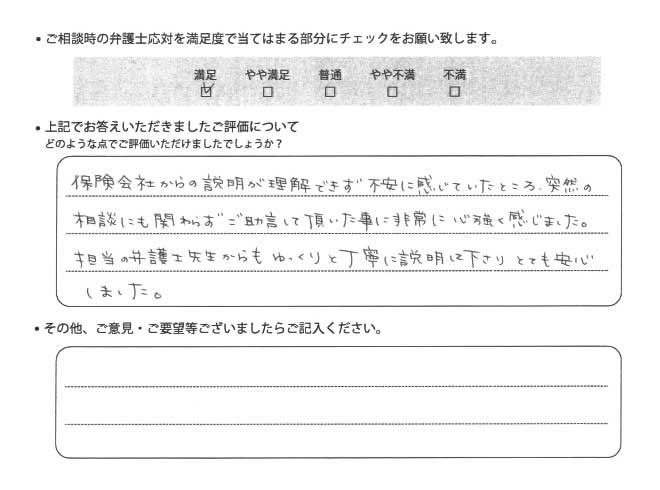 • ご相談時の弁護士応対を満足度で当てはまる部分にチェックをお願い致します。
満足 やや満足 普通 やや不満 不満
☑ □ □ □ □
• 上記でお答えいただきましたご評価について
どのような点でご評価いただけましたでしょうか？
保険会社からの説明が理解できず不安に感じていたところ、突然の
相談にも関わらずご助言して頂いた事に非常に心強く感じました。
担当の弁護士先生からもゆっくりと丁寧に説明して下さりとても安心
しました。
• その他、ご意見・ご要望等ございましたらご記入ください。